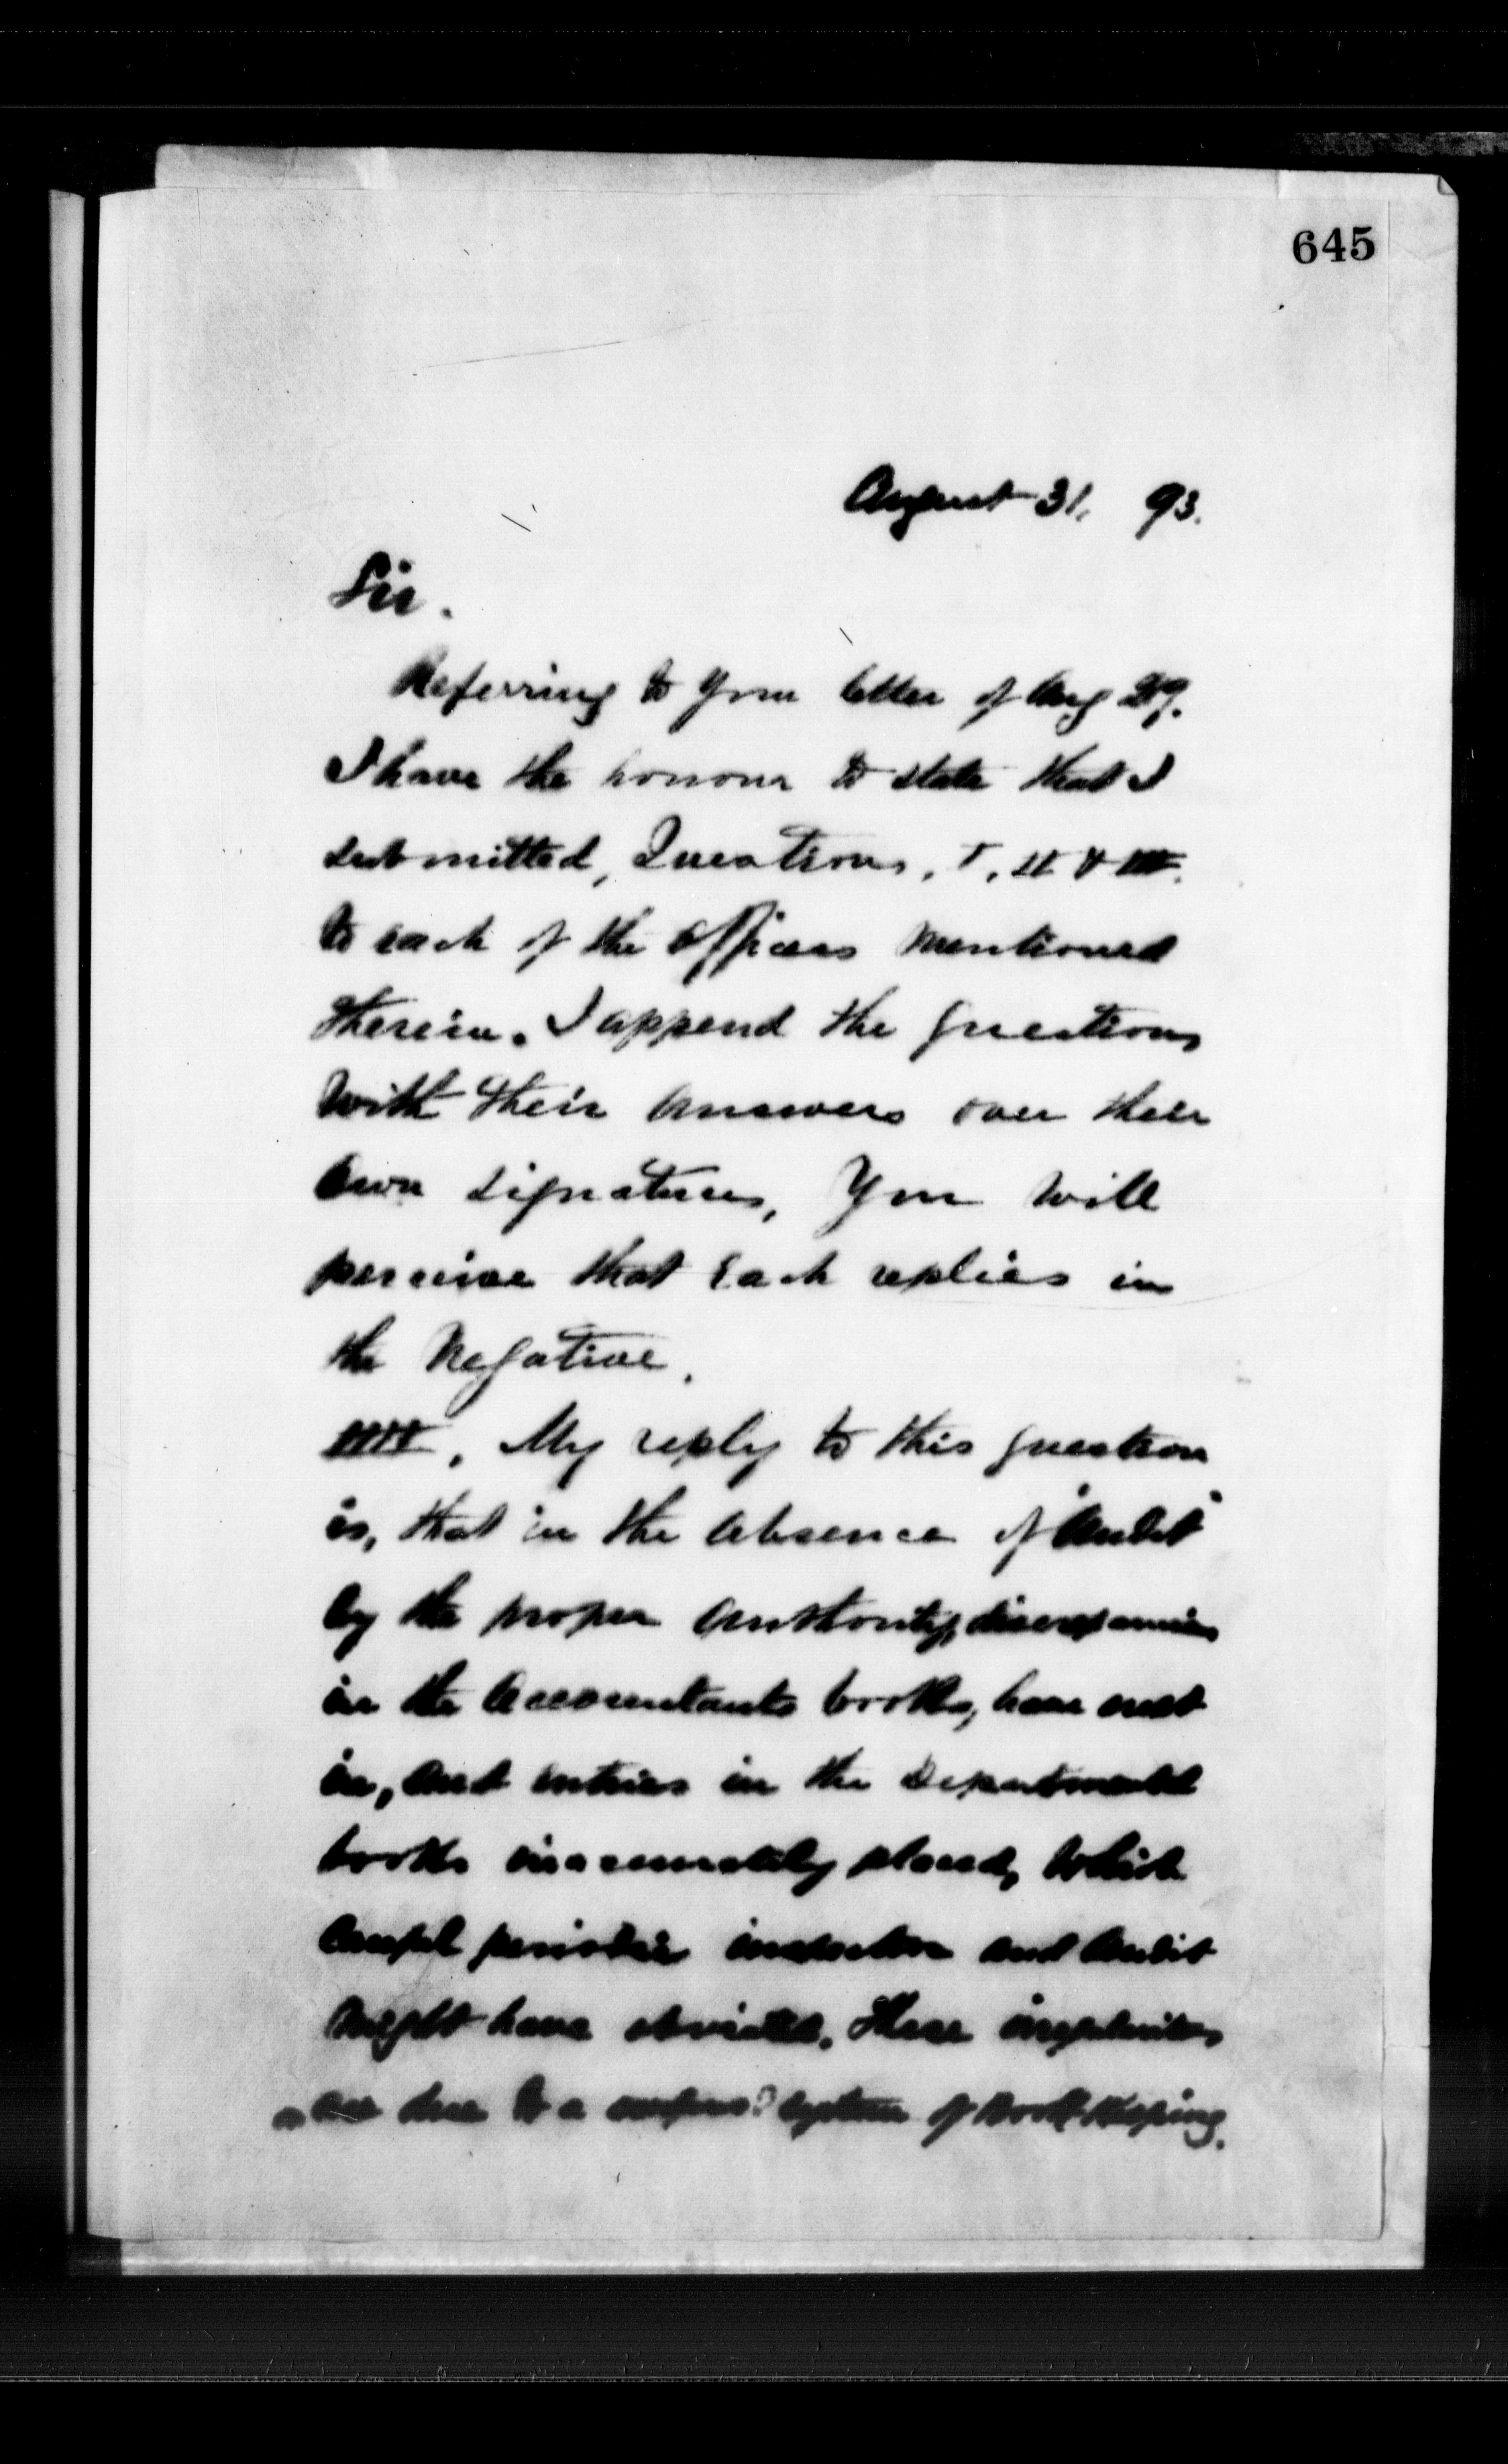 645
August 31, 93.
Sir.
Referring to your letter of Aug 29.
I have the honour to state that I
submitted, Questions, I, II & III.
to each of the Officers mentioned
therein. I append the questions
with their answers over their
own signatures, You will
perceive that each replies in
the negative.
IIII, My reply to this question
is, that in the absence of "Audit"
by the proper authority, discrepancies
in the Accountants books, have crept
in, and entries in the Departmental
books inaccurately placed, which
careful periodic inspection and audit
might have obviated. These irregularities
are due to a system of Book Keeping.